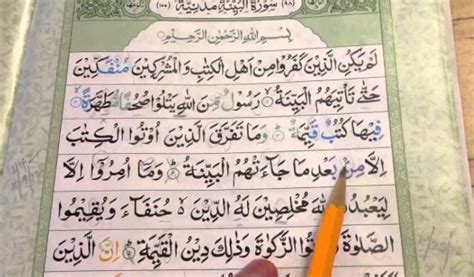 سُورَةُ الْبَيِّنَةِ مَدَنِيَّةٌ (٩٨) (١٠٠)
بِسْمِ اللهِ الرَّحْمٰنِ الرَّحِيْمِ
لَمْ يَكُنِ الَّذِيْنَ كَفَرُوْا مِنْ اَهْلِ الْكِتٰبِ وَ الْمُشْرِكِيْنَ مُنْفَكِّيْنَ
حَتّٰى تَاْتِيَهُمُ الْبَيِّنَةُ ۙ رَسُوْلٌ مِّنَ اللهِ يَتْلُوْا صُحُفًا مُّطَهَّرَةً ۙ
فِيْهَا كُتُبٌ قَيِّمَةٌ ؕ وَ مَا تَفَرَّقَ الَّذِيْنَ اُوْتُوا الْكِتٰبَ
اِلَّا مِنْۢ بَعْدِ مَا جَآءَتْهُمُ الْبَيِّنَةُ ؕ وَ مَاۤ اُمِرُوْۤا اِلَّا
لِيَعْبُدُوا اللهَ مُخْلِصِيْنَ لَهُ الدِّيْنَ ۙ حُنَفَآءَ وَ يُقِيْمُوا
الصَّلٰوةَ وَ يُؤْتُوا الزَّكٰوةَ وَ ذٰلِكَ دِيْنُ الْقَيِّمَةِ ؕ اِنَّ الَّذِيْنَ